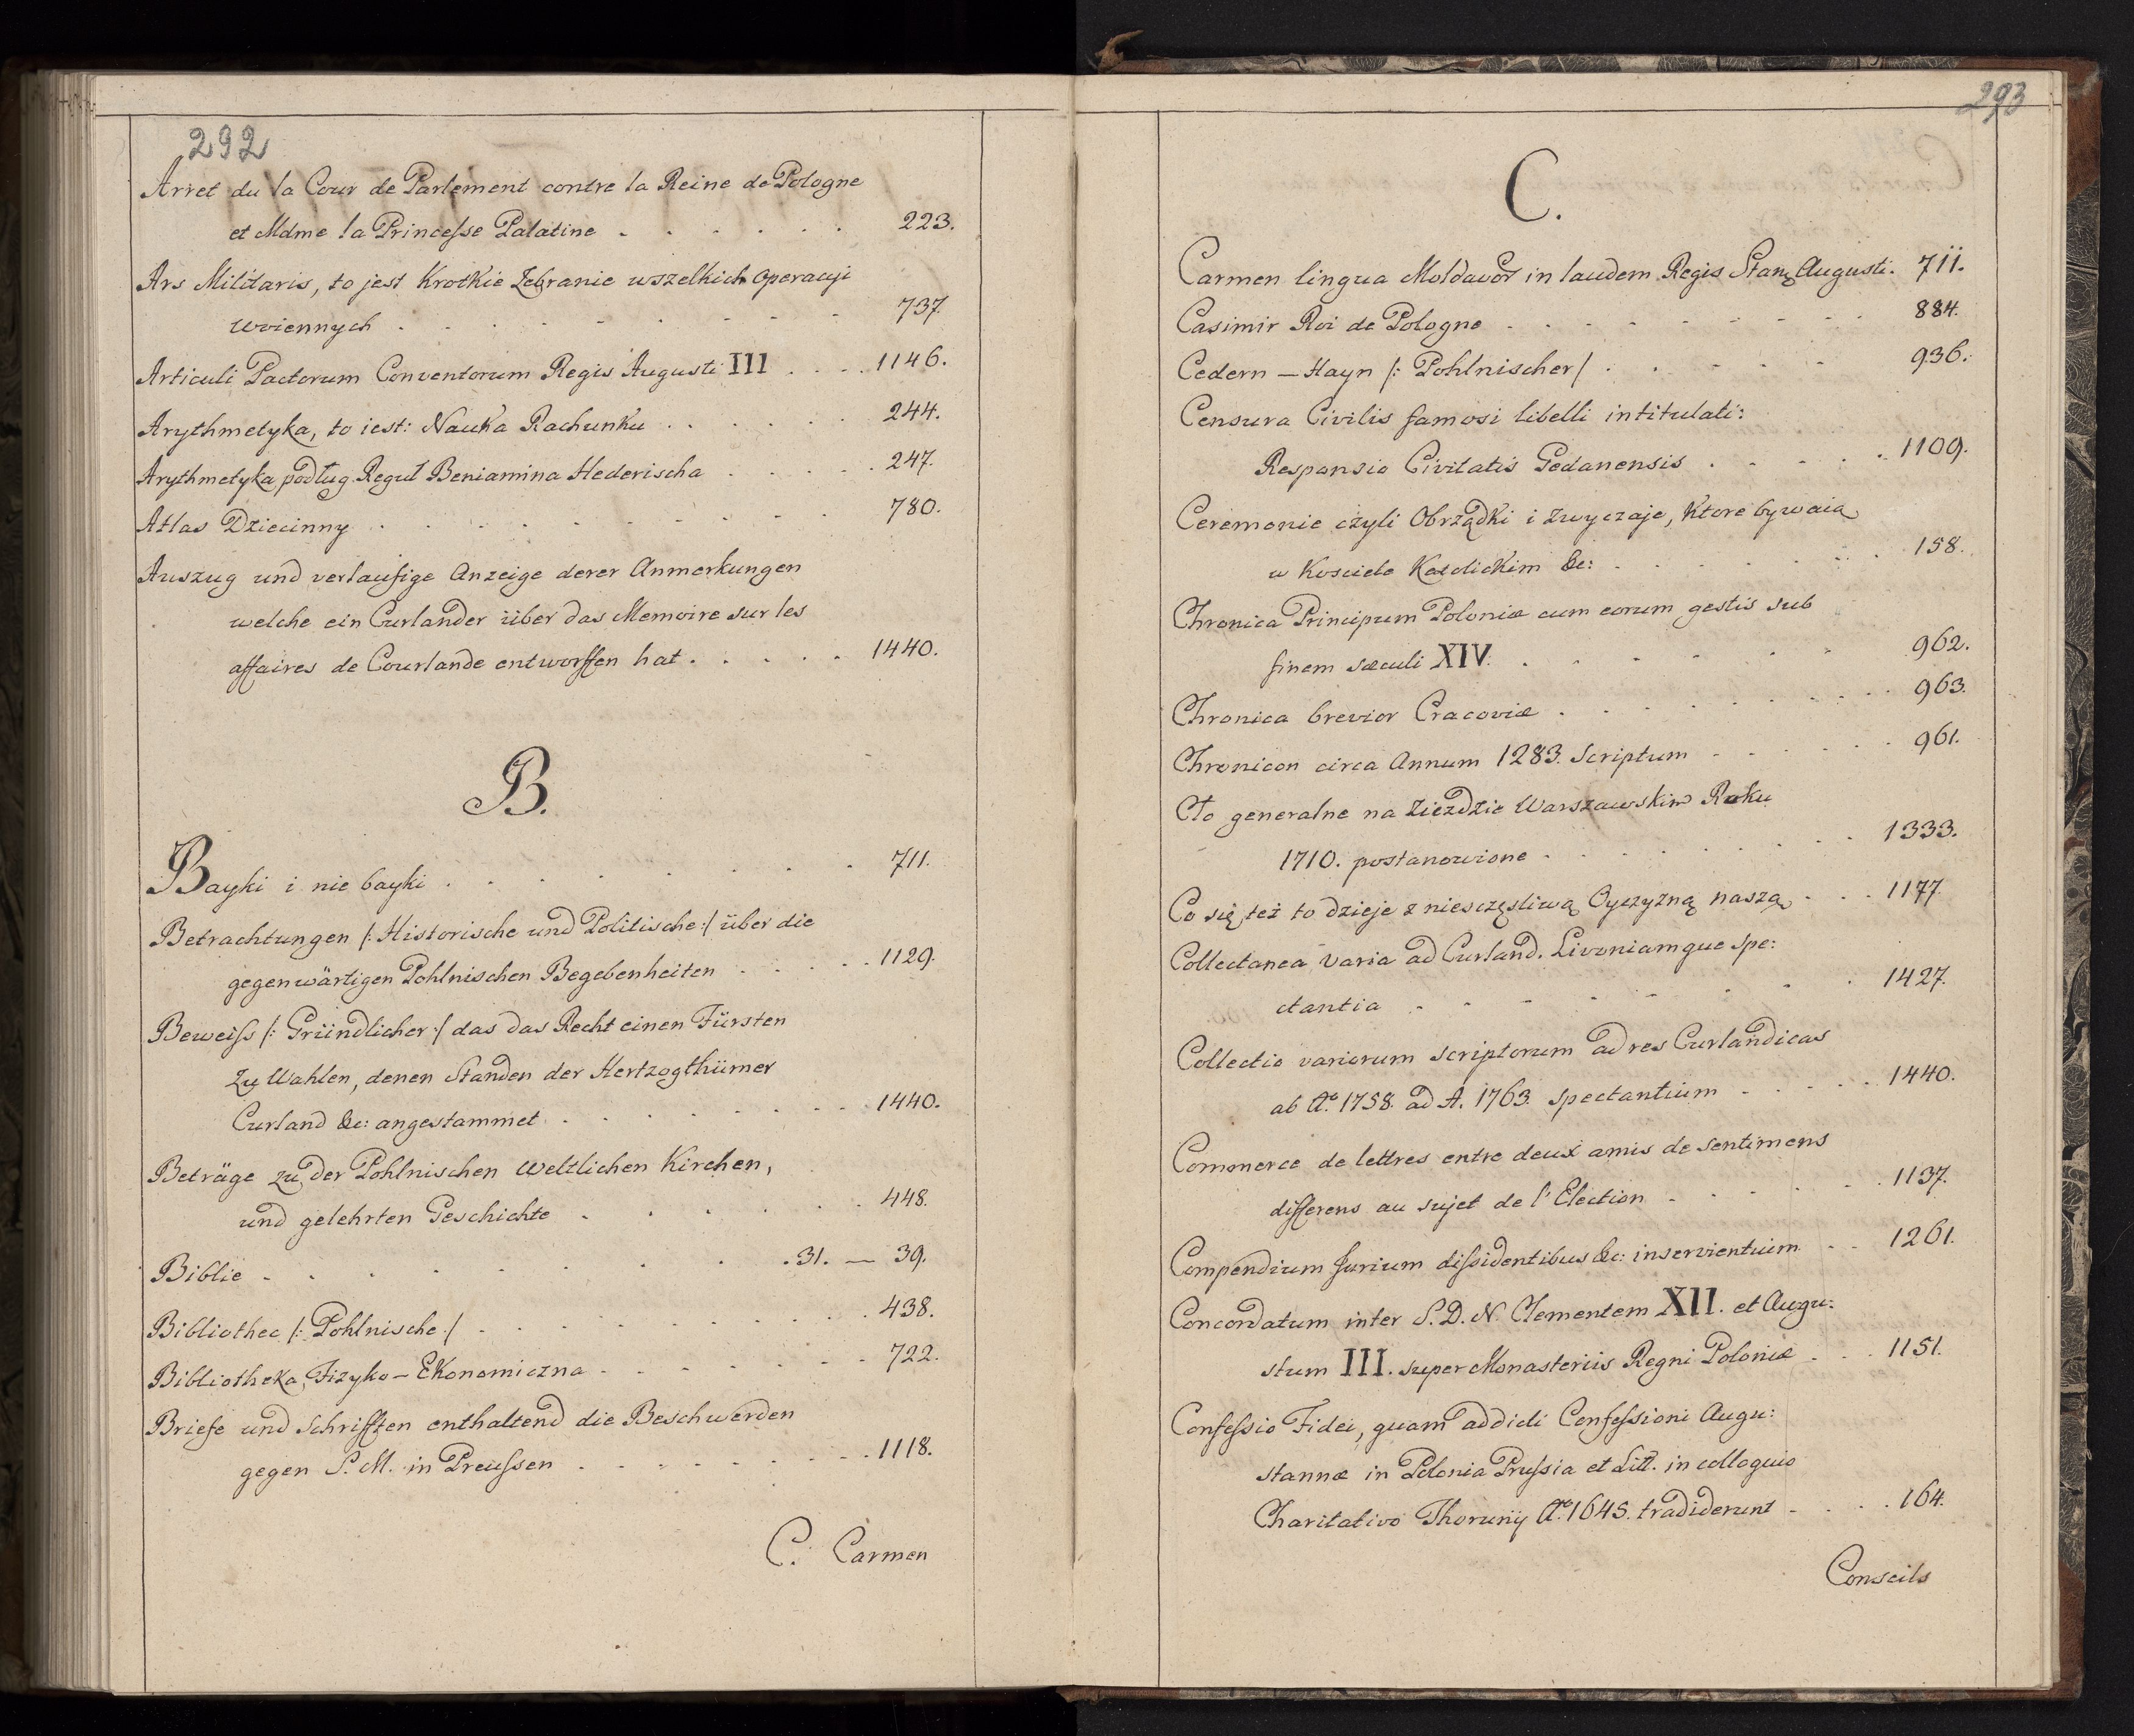 292
Arret du la Cour de Parlement contre la Reine de Pologne
et Mdme la Princesse Palatine . . . . . . 223.
Ars Militaris, to jest Krotkie Zebranie wszelkich Operacyi
woiennych . . . . . . . . . 737.
Articuli Pactorum Conventorum Regis Augusti III . . . . 1146.
Arythmetyka, to iest: Nauka Rachunku . . . . . 244.
Arythmetyka podług Reguł Beniamina Hederischa . . . . . 247.
Atlas Dziecinny . . . . . . . . . 780.
Auszug und verlaufige Anzeige derer Anmerkungen
welche ein Curlander über das Memoire sur les
affaires de Courlande entworffen hat . . . . . 1440.
B.
Bayki i nie bayki . . . . . . . . . 711.
Betrachtungen /: Historische und Politische :/ über die
gegenwärtigen Pohlnischen Begebenheiten . . . . . 1129.
Beweiss /: Gründlicher :/ das das Recht einen Fürsten
zu Wahlen, denen Standen der Hertzogthümer
Curland &c: angestammet . . . . . . . . 1440.
Beträge zu der Pohlnischen weltlichen Kirchen,
und gelehrten Geschichte . . . . . . 448.
Biblie . . . . . . . . 31. — 39.
Bibliothec /: Pohlnische :/ . . . . . . . . . 438.
Bibliotheka, Fizyko – Ekonomiczna . . . . . . . 722.
Briefe und Schrifften enthaltend die Beschwerden
gegen S. M. in Preussen . . . . . . . . 1118.
C. Carmen
293
C.
Carmen lingua Moldavor in laudem Regis Stan. Augusti. 711.
Casimir Roi de Pologne . . . . . . . . . 884.
Cedern – Hayn /: Pohlnischer / . . . . . 936.
Censura Civilis famosi libelli intitulati:
Responsio Civitatis Gedanensis . . . . . 1109.
Ceremonie czyli Obrządki i zwyczaje, Ktore bywaią
w Kosciele Katolickim &c: . . . . . . . 158.
Chronica Principum Poloniæ cum eorum gestis sub
finem sæculi XIV. . . . . . . . 962.
Chronica brevior Cracoviæ . . . . . . . . . 963.
Chronicon circa Annum 1283. Scriptum . . . . . . 961.
Cło generalne na Ziezdzie Warszawskim Roku
1710. postanowione . . . . . . . . 1333.
Co się też to dzieje z niesczęsliwą Oyczyzną naszą . . . 1177.
Collectanea varia ad Curland. Livoniamque spe:
ctantia . . . . . . . . . 1427.
Collectio variorum scriptorum ad res Curlandicas
ab Ao. 1758. ad A. 1763. spectantium . . . . . 1440.
Commerce de lettres entre deux amis de sentimens
differens au sujet de l'Election . . . . . . 1137.
Compendium Jurium dissidentibus &c: inservientium . . 1261.
Concordatum inter S. D. N. Clementem XII. et Augu:
stum III. super Monasteriis Regni Poloniæ . . . 1151.
Confessio Fidei, quam addicti Confessioni Augu:
stannæ in Polonia Prussia et Litt. in colloquio
Charitativo Thorunij Ao. 1645. tradiderunt . . . . 164.
Conseils